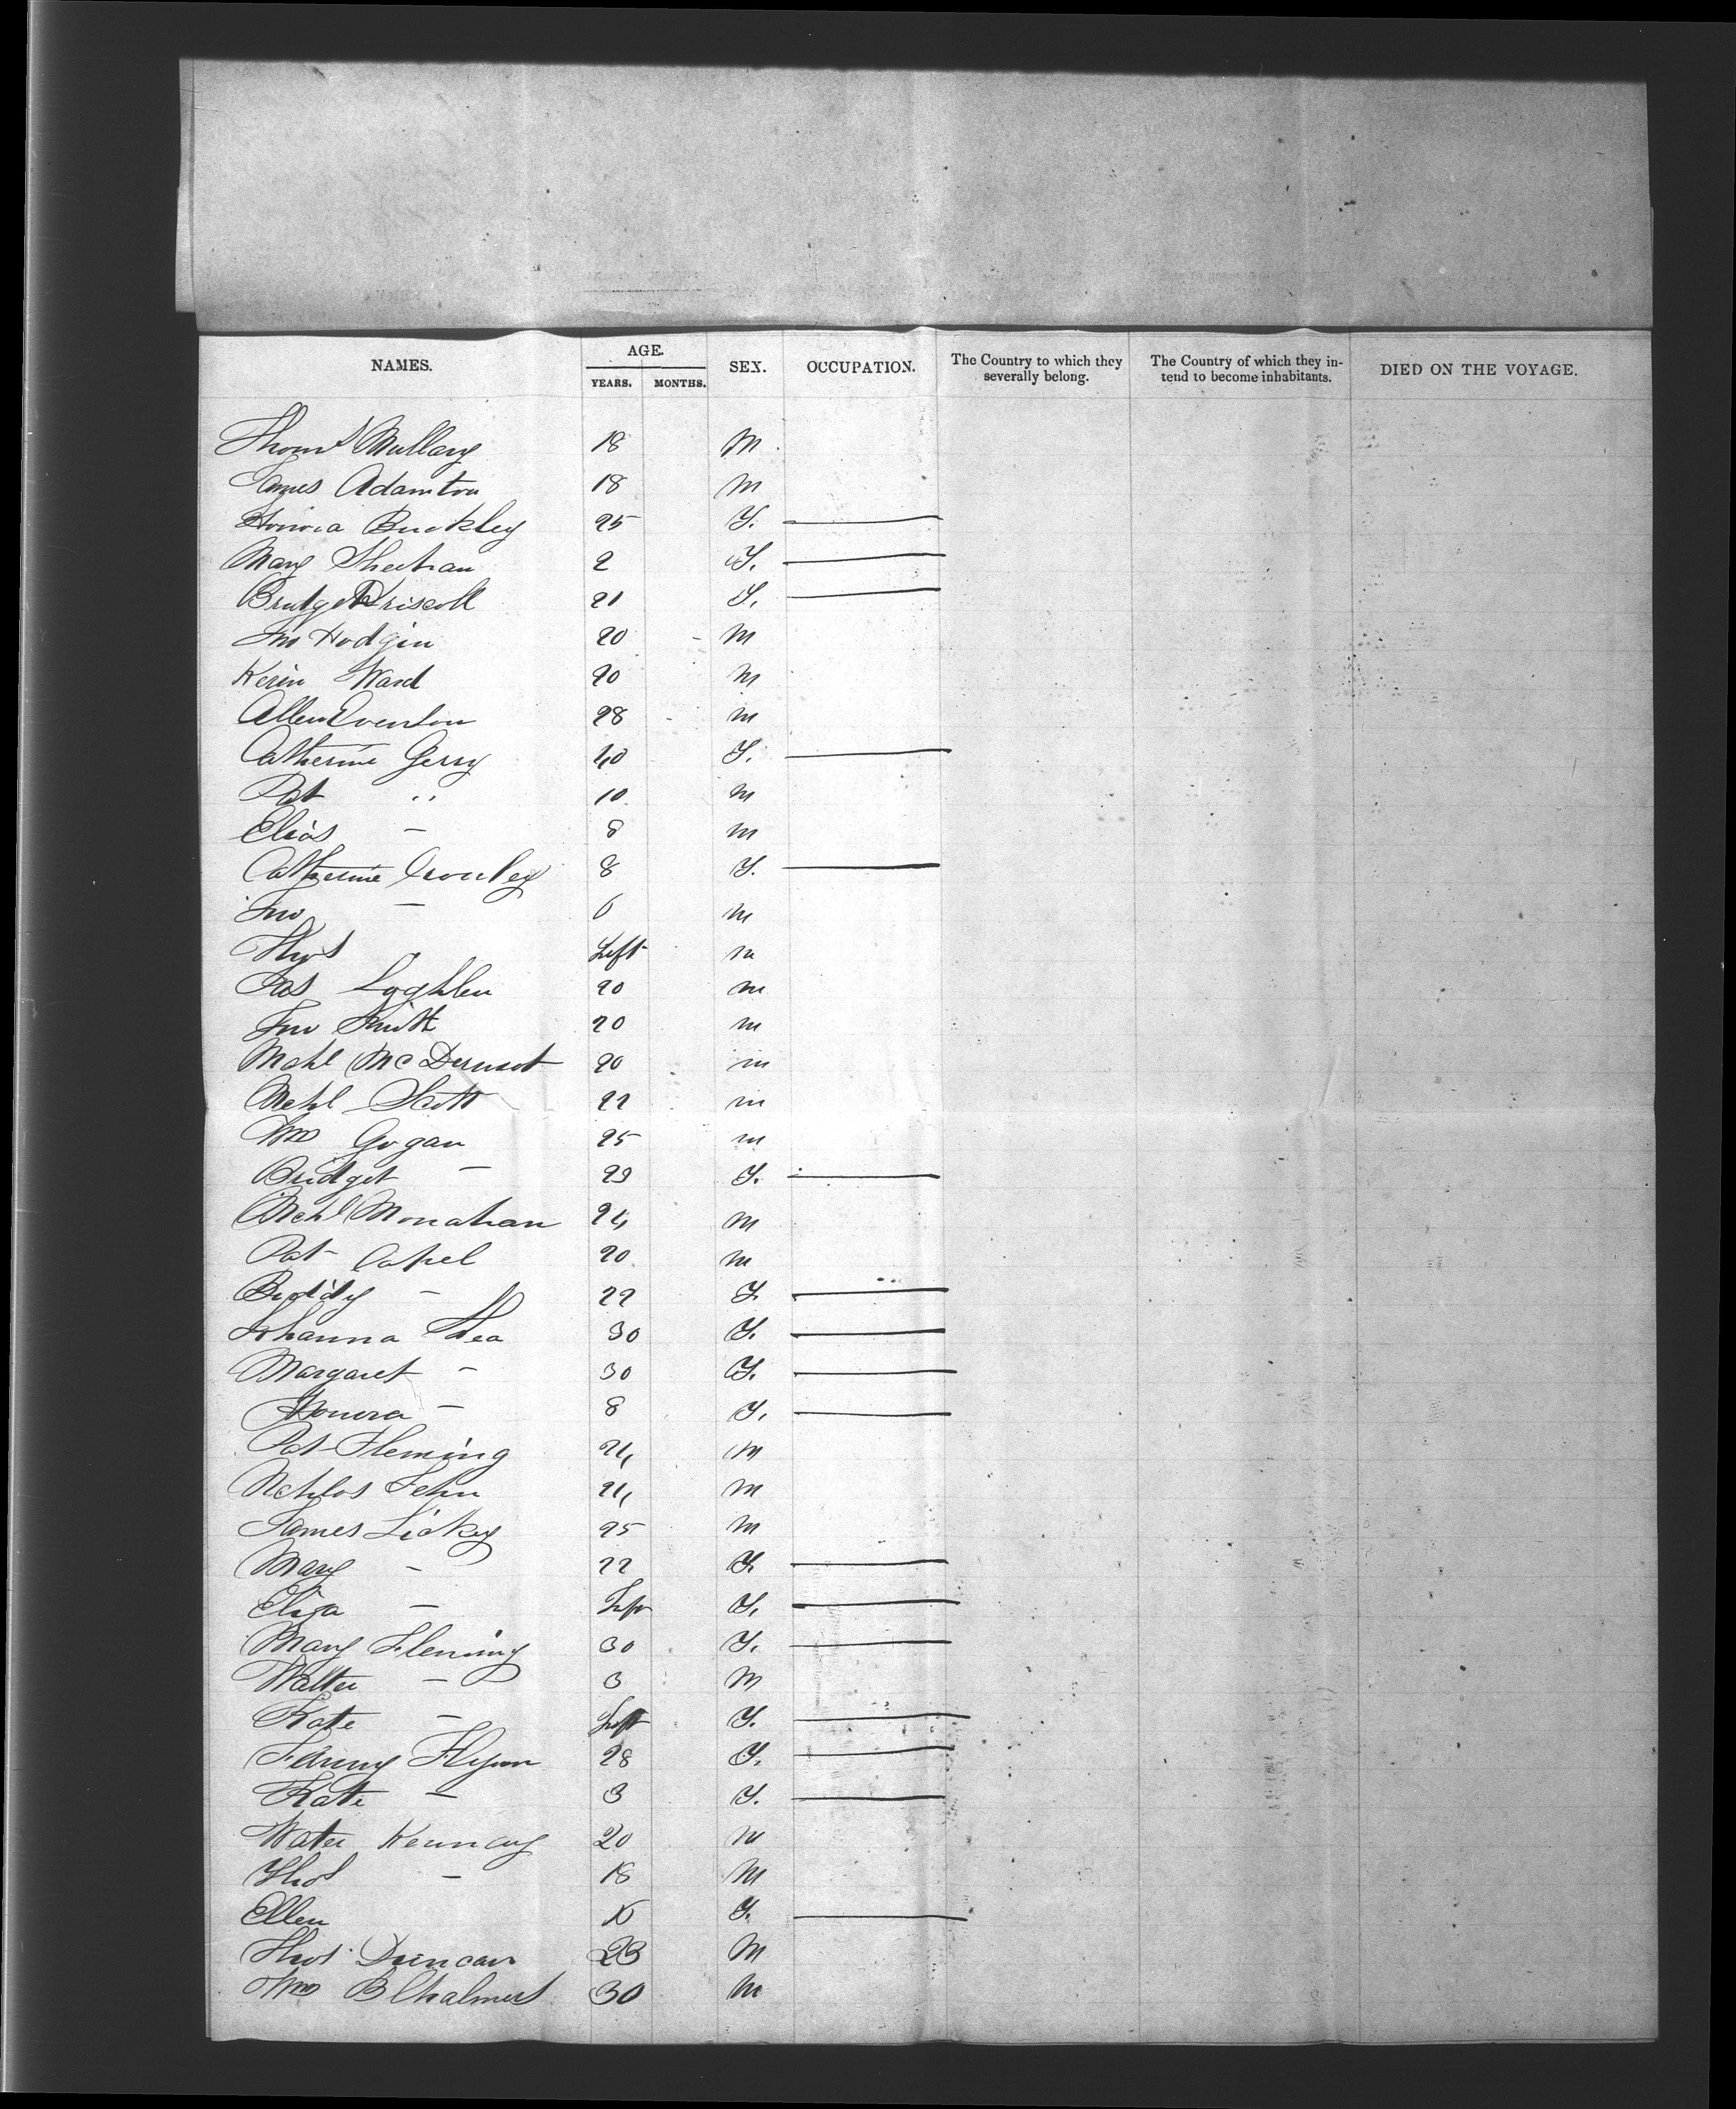 NAMES. AGE. YEARS. MONTHS. SEX. OCCUPATION. The Country to which they severally belong. The Country of which they intend to become inhabitants. DIED ON THE VOYAGE.
Thoms Mullary 18 M
James Adamton 18 M
Honora Buckley 25 F.
Mary Sheehan 2 F.
Bridget Driscoll 21 F.
Jno Hodgin 20 M
Kerin Ward 20 M
Allen Overton 28 M
Catherine Gerry 40 F.
Pat " 10 M
Elias — 8 M
Catherine Crowley 8 F.
Jno — 6 M
Thos Inft M
Pat Loghlen 20 M
Jno Smith 20 M
Mchl McDermot 20 M
Mchl Scott 22 M
Wm Gogan 25 M
Bridget — 23 F.
Mchl Monahan 24 M
Pat Cahel 20 M
Biddy — 22 F.
Johanna Shea 30 F.
Margaret — 30 F.
Honora — 8 F.
Pat Fleming 24 M
Nchlos Fehn 24 M
James Lickey 25 M
Mary — 22 F.
Eliza — Inft F.
Mary Fleming 30 F.
Walter — 3 M
Kate — Inft F.
Fanny Flynn 28 F.
Kate — 3 F.
Water Kennary 20 M
Thos — 18 M
Ellen F.
Thos Duncan 23 M
Wm B Chalmers 30 M